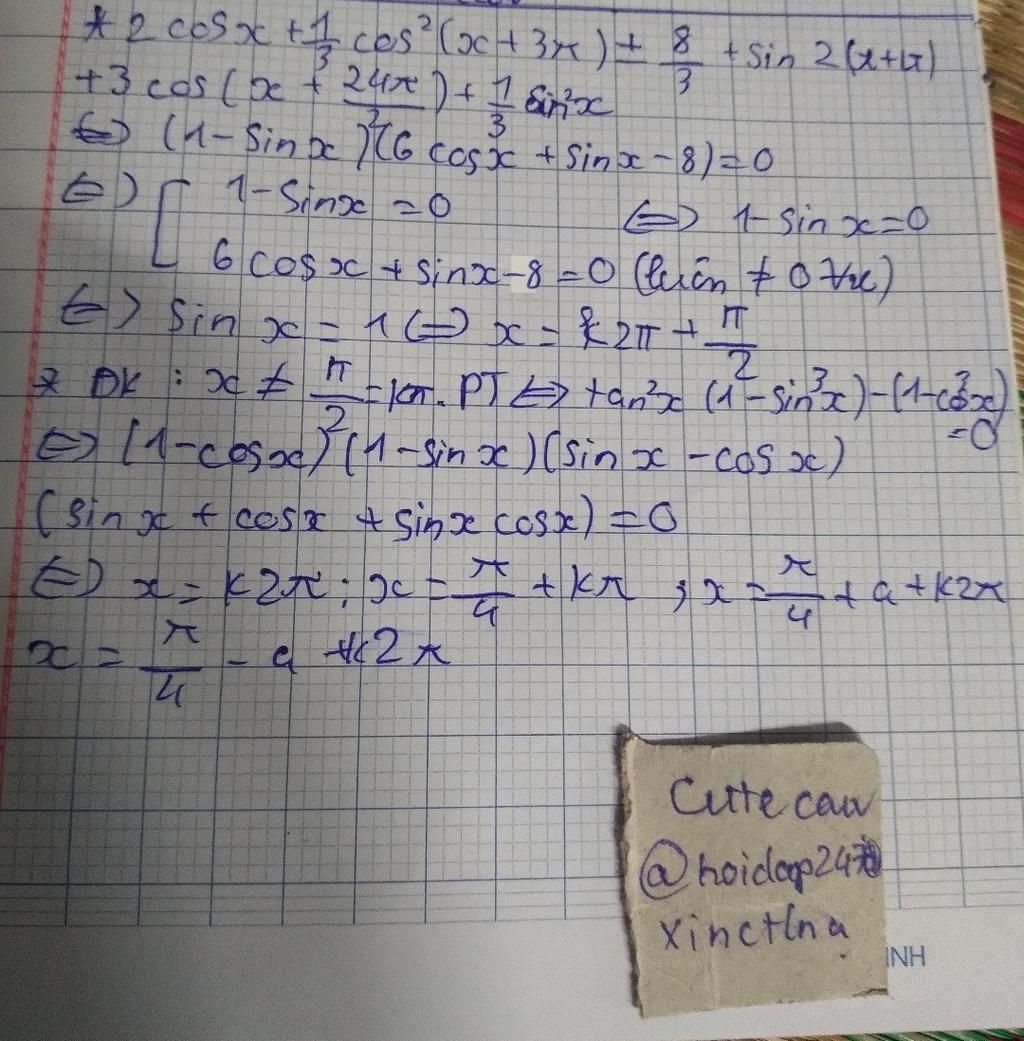 * 2 cosx + 1/3 cos²(x + 3π) = 8/3 + sin 2(x+π)
+3 cos(x + 21π/2) + 1/3 sin²x
⇔ (1-sinx)(6 cosx + sinx - 8) = 0
⇔ [ 1 - sinx = 0 ⇔ 1 - sin x = 0
6 cosx + sinx - 8 = 0 (luôn ≠ 0 ∀x)
⇔ sin x = 1 ⇔ x = k2π + π/2
* ĐK : x ≠ π/2 = kπ. PT ⇔ tan²x (1 - sin³x) - (1 - cos³x) = 0
⇔ (1-cosx)(1-sinx)(sin x - cos x)
(sin x + cosx + sinx cosx) = 0
⇔ x = k2π ; x = π/4 + kπ ; x = π/4 + a + k2π
x = π/4 - a + k2π
Cute cau
@hoidap247
xinctlna
INH